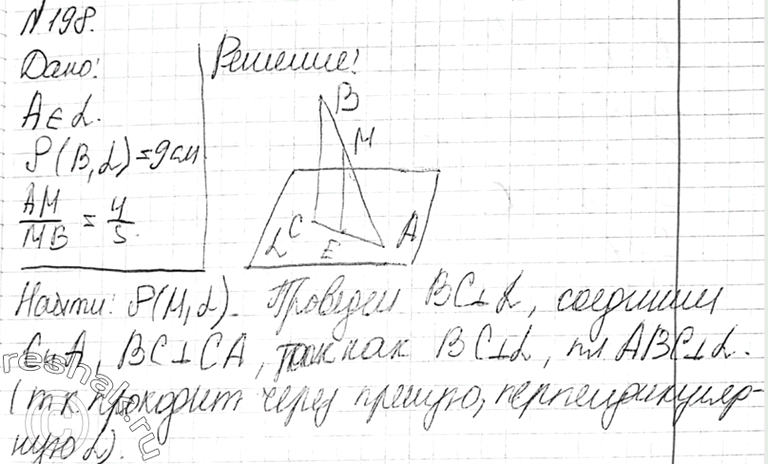 №198.
Дано:
A∈α.
ρ(B,α)=9см
AM/MB = 4/5.
Решение:
B
M
C
α
E
A
Найти: ρ(M,α). Проведем BC⊥α, соединим
C и A, BC⊥CA, так как BC⊥α, пл ABC⊥α.
(т к проходит через прямую, перпендикуляр-
ную α).
reshak.ru